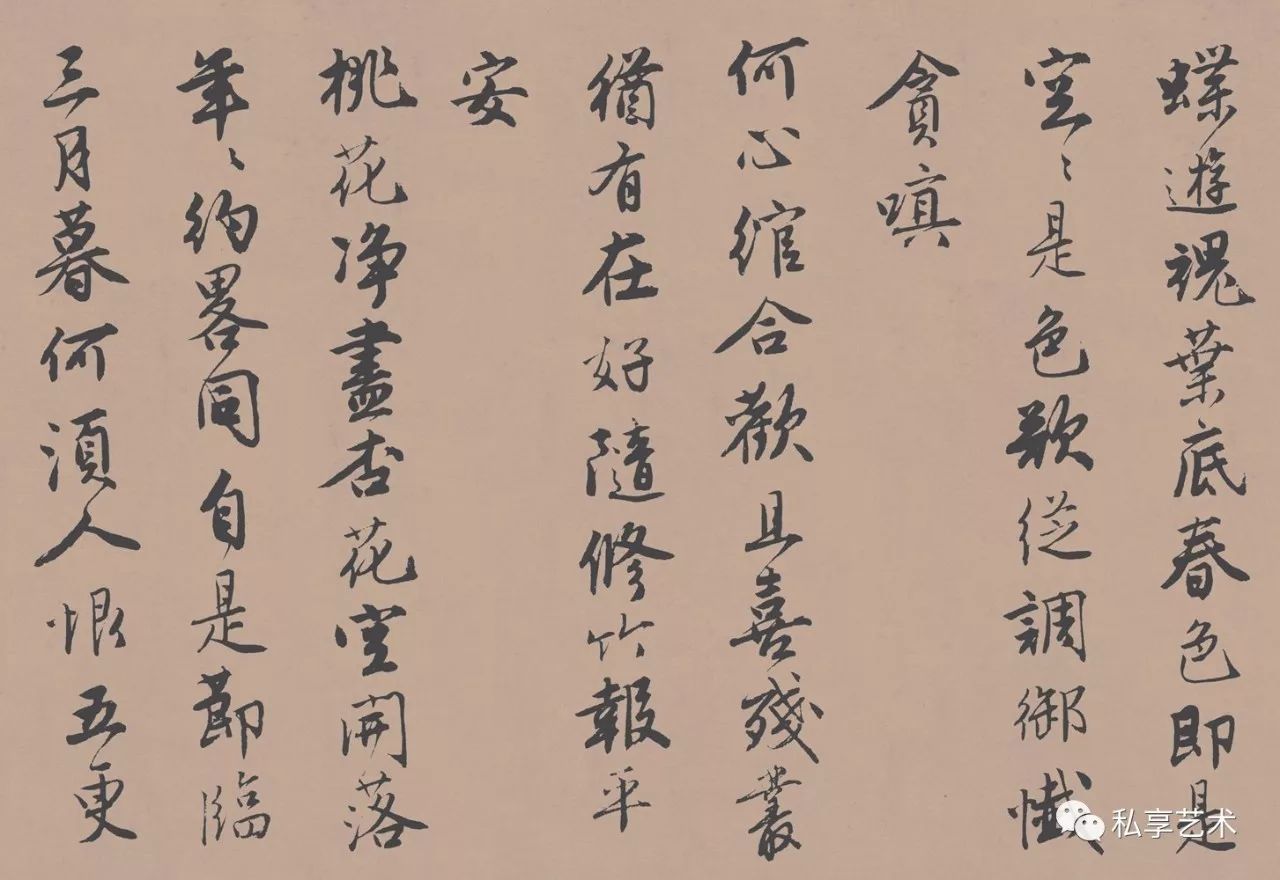 蝶遊魂葉底春色即是
空〻是色欲從調御懺
貪嗔
何心綰合歡且喜殘叢
猶有在好隨修竹報平
安
桃花净盡杏花空開落
年〻約畧同自是節臨
三月暮何須人恨五更
私享艺术